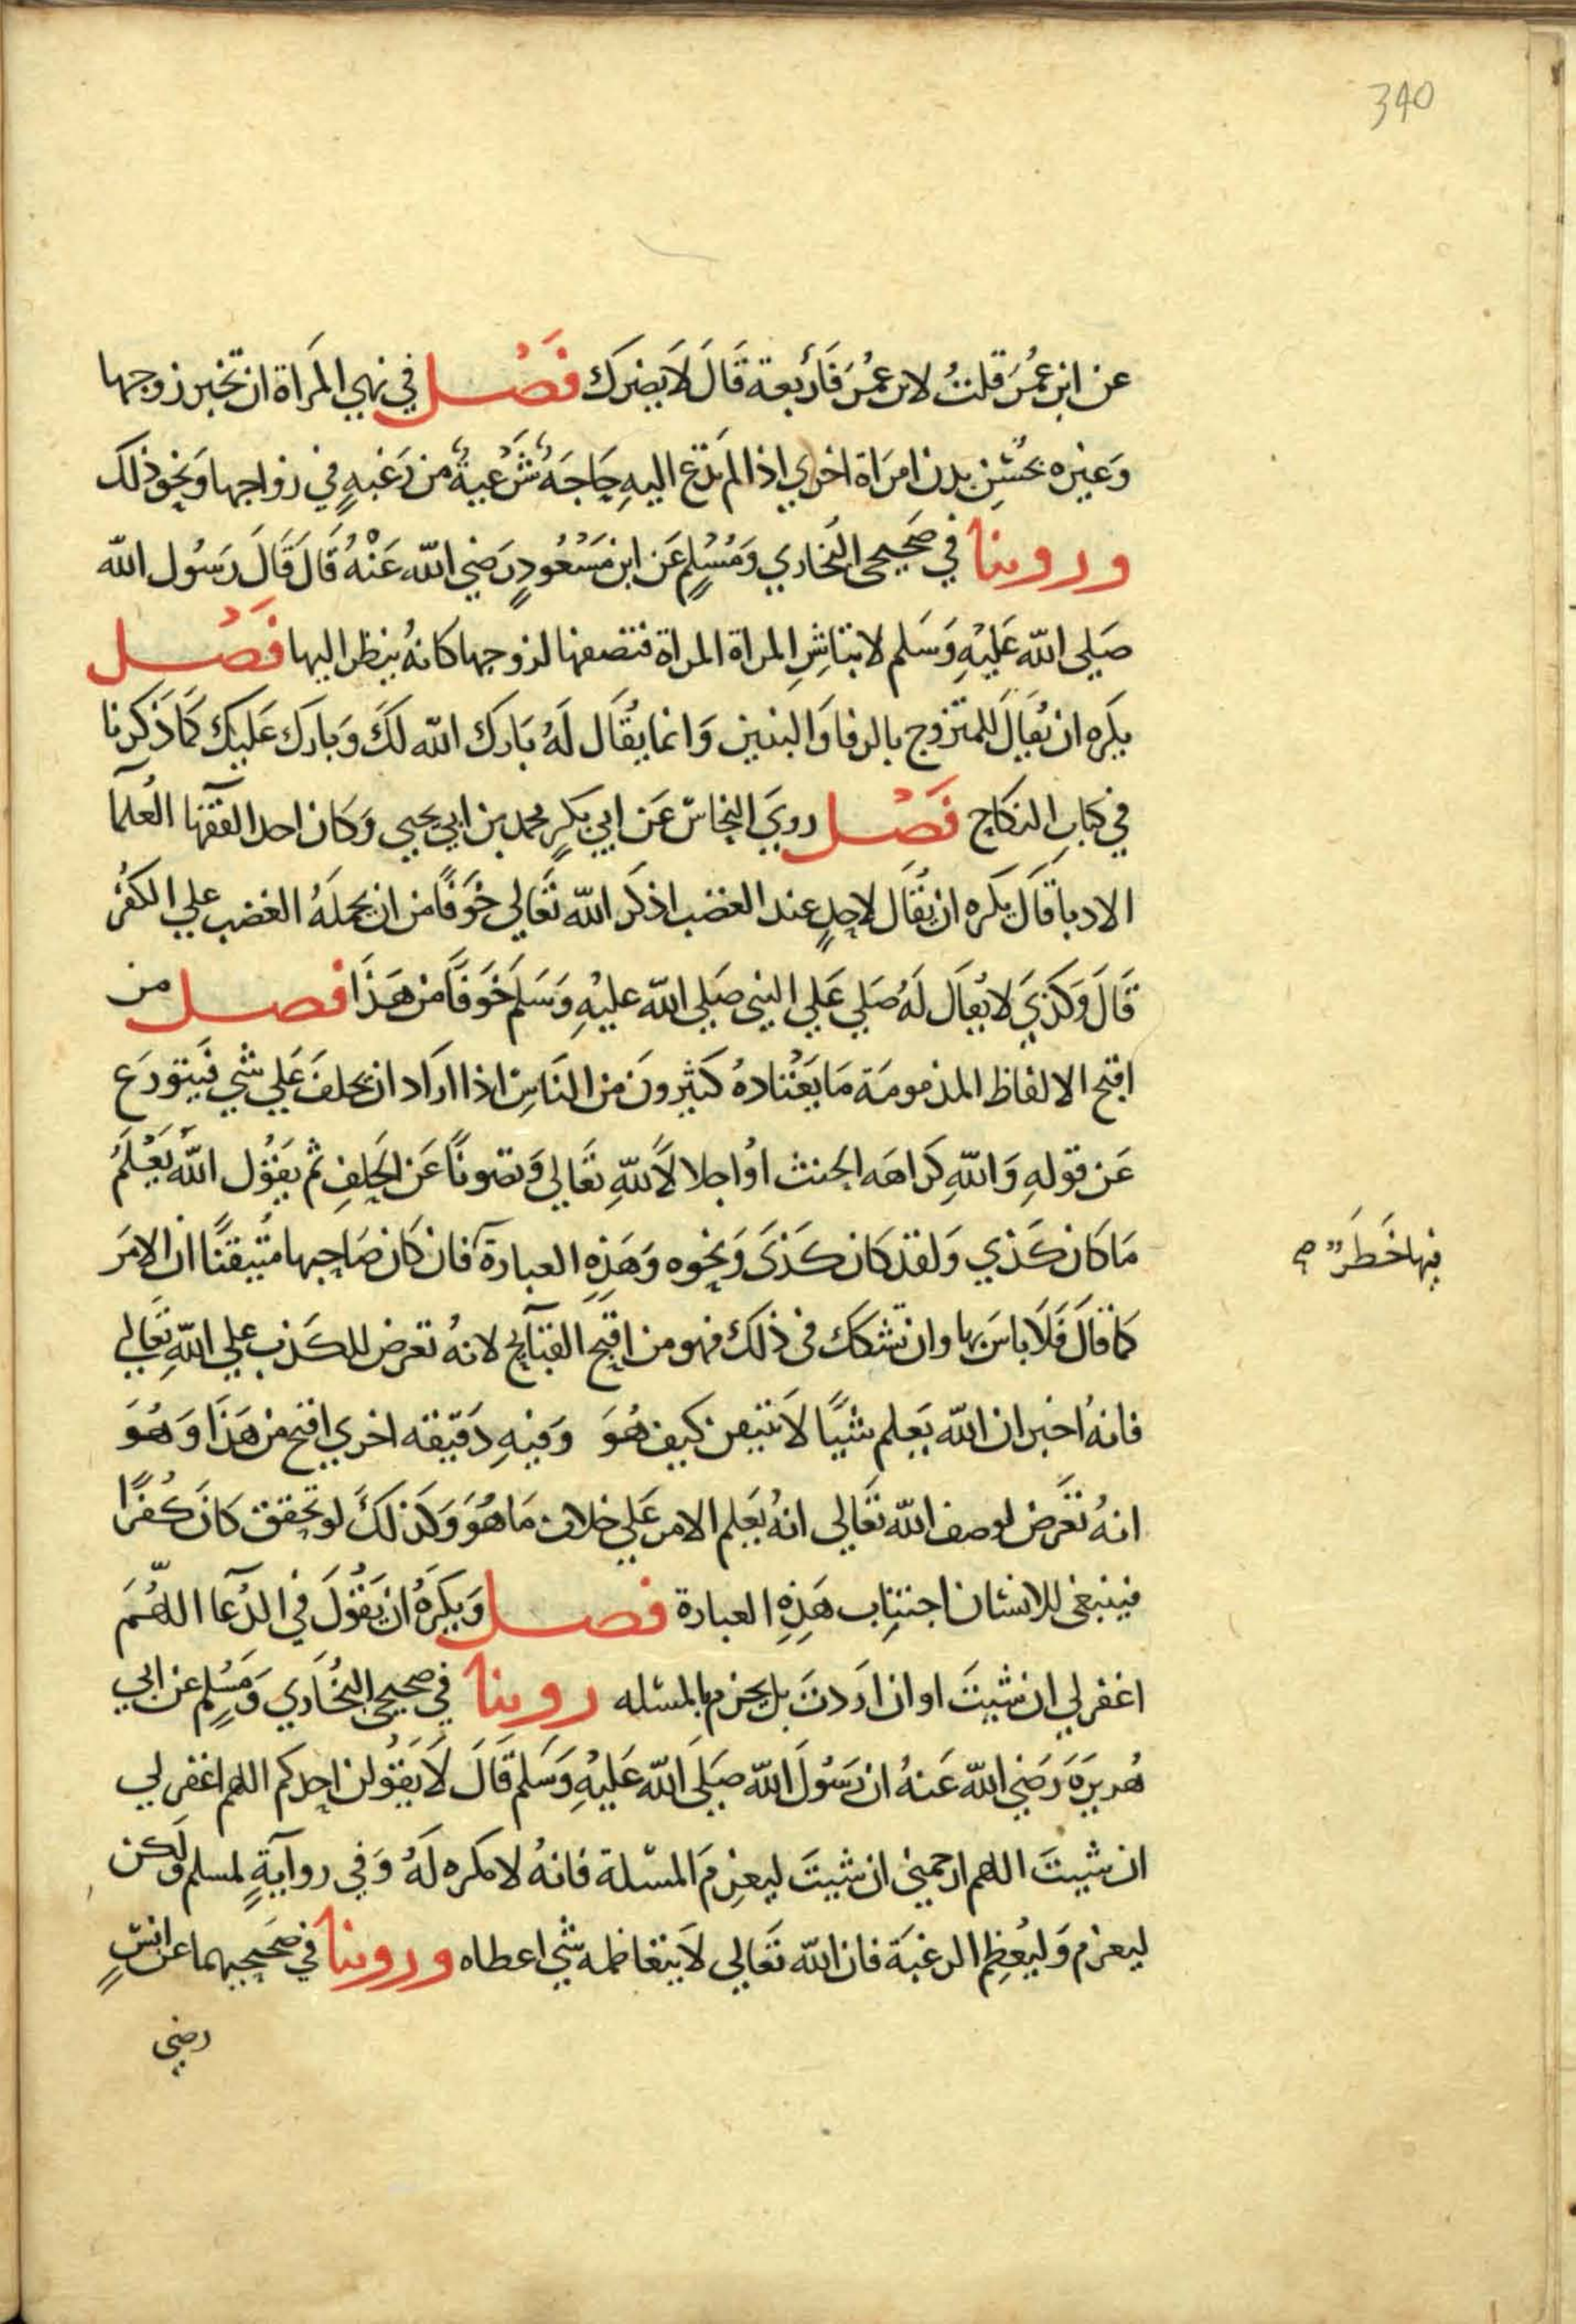 340
عن ابن عُمَر قلتُ لابن عمُرَ فَأَربعة قَالَ لَا يضرك فَصْل في نهي المَراة ان تخبر زوجها
وَغيره بحُسْن بدن امرَاة اخري اذا لم تدع اليهِ حَاجَةٌ شَرْعيةٌ من رَغبهٍ في زواجها وَنحو ذلك
ورويَنا في صَحيحي البُخاري وَمُسْلمٍ عَن ابن مَسْعُودٍ رَضي الله عَنْهُ قَالَ قَالَ رَسُول الله
صَلي الله عَليْهِ وَسَلم لا تباشِرِ المراة المراة فتصفها لزوجها كانهُ ينظر اليها فَصْل
يكَره ان يُقَالَ للمتزوج بالرفا وَالبنين وَانما يقَال لَهُ بَارك الله لكَ وَبارَك عَليك كمَا ذَكرنا
في كتابِ النكاح فَصْل رويَ النحاسُ عَن ابي بَكرٍ محمد بن ابي يحيي وَكان احد الفقها العُلمآ
الادبا قَالَ يكَره ان يُقَال لاحدٍ عند الغضب اذكَر الله تَعَالي خَوفًا من ان يحملَهُ الغضب علي الكفُر
قَالَ وَكذيَ لا يُقَال لَهُ صَلِي عَلي النبي صَلي الله عليْهِ وَسَلَم خَوفًا من هَذَا فصل من
اقبح الالفاظ المذمومَة مَا يَعْتادهُ كَثيرونَ من النَاسِ اذا ارَاد ان يحلفَ عَلي شي فَيتورَع
عَن قولهِ وَاللهِ كرَاهَه الحنث اوْ اجلالاً للهِ تعَالي وَتصونًا عَن الحَلفِ ثم يَقوُل اللهُ يَعْلمُ
مَا كان كَذي وَلقد كان كَذيَ وَنحوه وَهَذِهِ العبارة فان كان صَاحبها مُتيقنًا ان الامرَ
فيها خَطَرٌ صح
كمَا قَالَ فَلَا باسَ بها وان تشكك في ذلك فهو من اقبح القبآيح لانهُ تعرض للكَذب علي اللهِ تَعَالي
فانهُ اخبر ان الله يَعلم شيًا لَا يتيقن كيف هُوَ وَفيهِ دَقيقه اخري اقبح من هَذَا وَهُوَ
انهُ تعَرض لوصف الله تعَالي انهُ يَعلم الامر عَلي خلاف مَا هُوَ وَكَذلكَ لو تحَقق كَانَ كُفرًا
فينبغي للانسَان اجتِناب هَذِهِ العبارة فصل وَيكَرهُ ان يَقوُلَ في الدُعَآ اللهُمَ
اغفر لي ان شيتَ او ان اردتَ بل يجزم بالمسئله روينا في صحيحي البُخَاري وَمُسْلِم عن ابي
هُريرَة رَضي الله عَنهُ ان رَسُولَ الله صَلَي الله عَليْهِ وَسَلم قَالَ لَا يَقوُلن احدكم اللهم اغفر لي
ان شيتَ اللهم ارحمني ان شيتَ ليعزمِ المسئلة فانهُ لا مكره لَهُ وَفي روآيةٍ لمسلم وَلَكن
ليعزم وَليُعظِم الرغبَة فان الله تَعَالي لَا يتعاظمه شي اعطاه ورويَنا في صَحيحيهما عن انسٍ
رضي